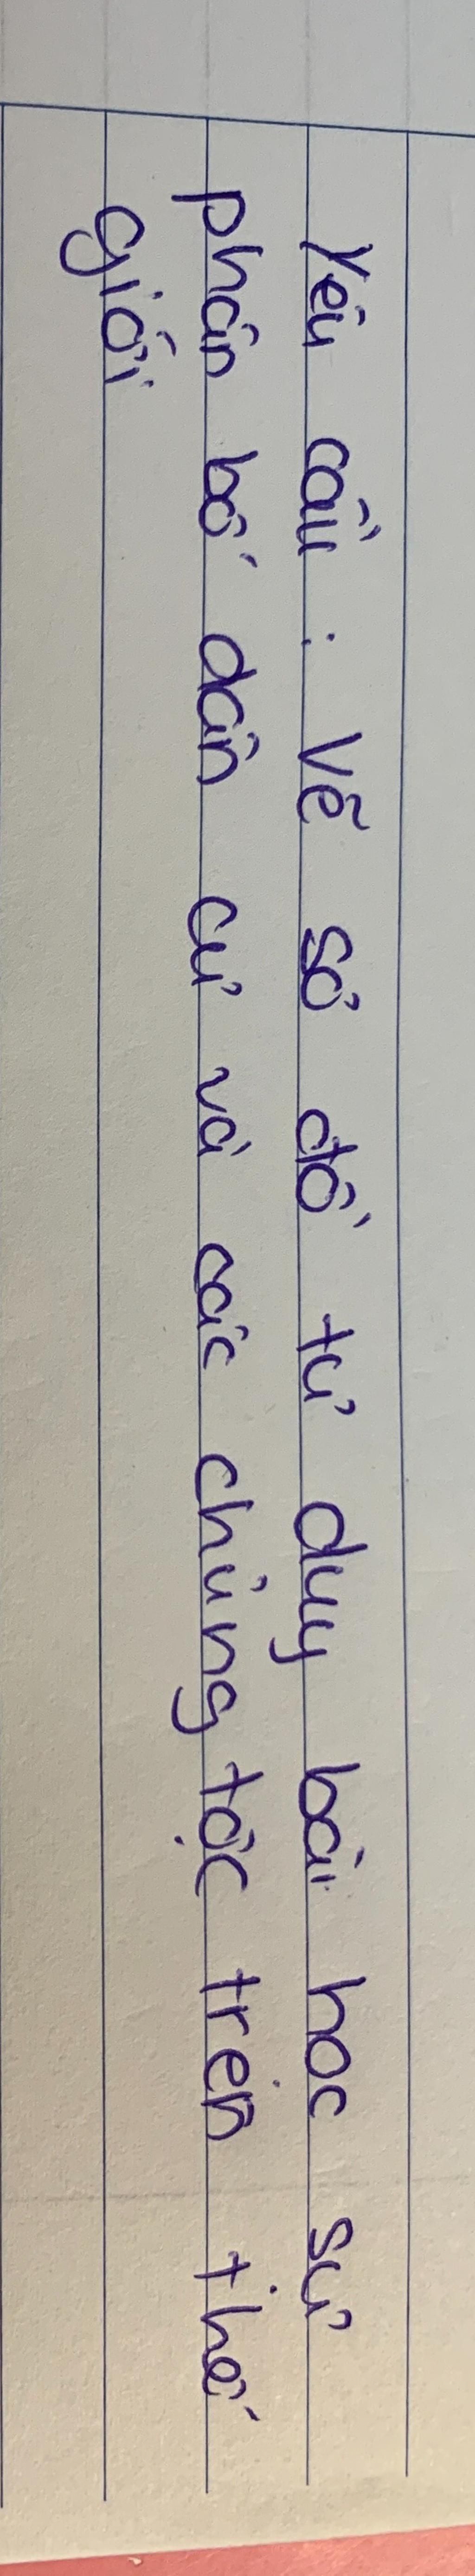 Yêu cầu : Vẽ sơ đồ tư duy bài học sự
phân bố dân cư và các chủng tộc trên thế
giới